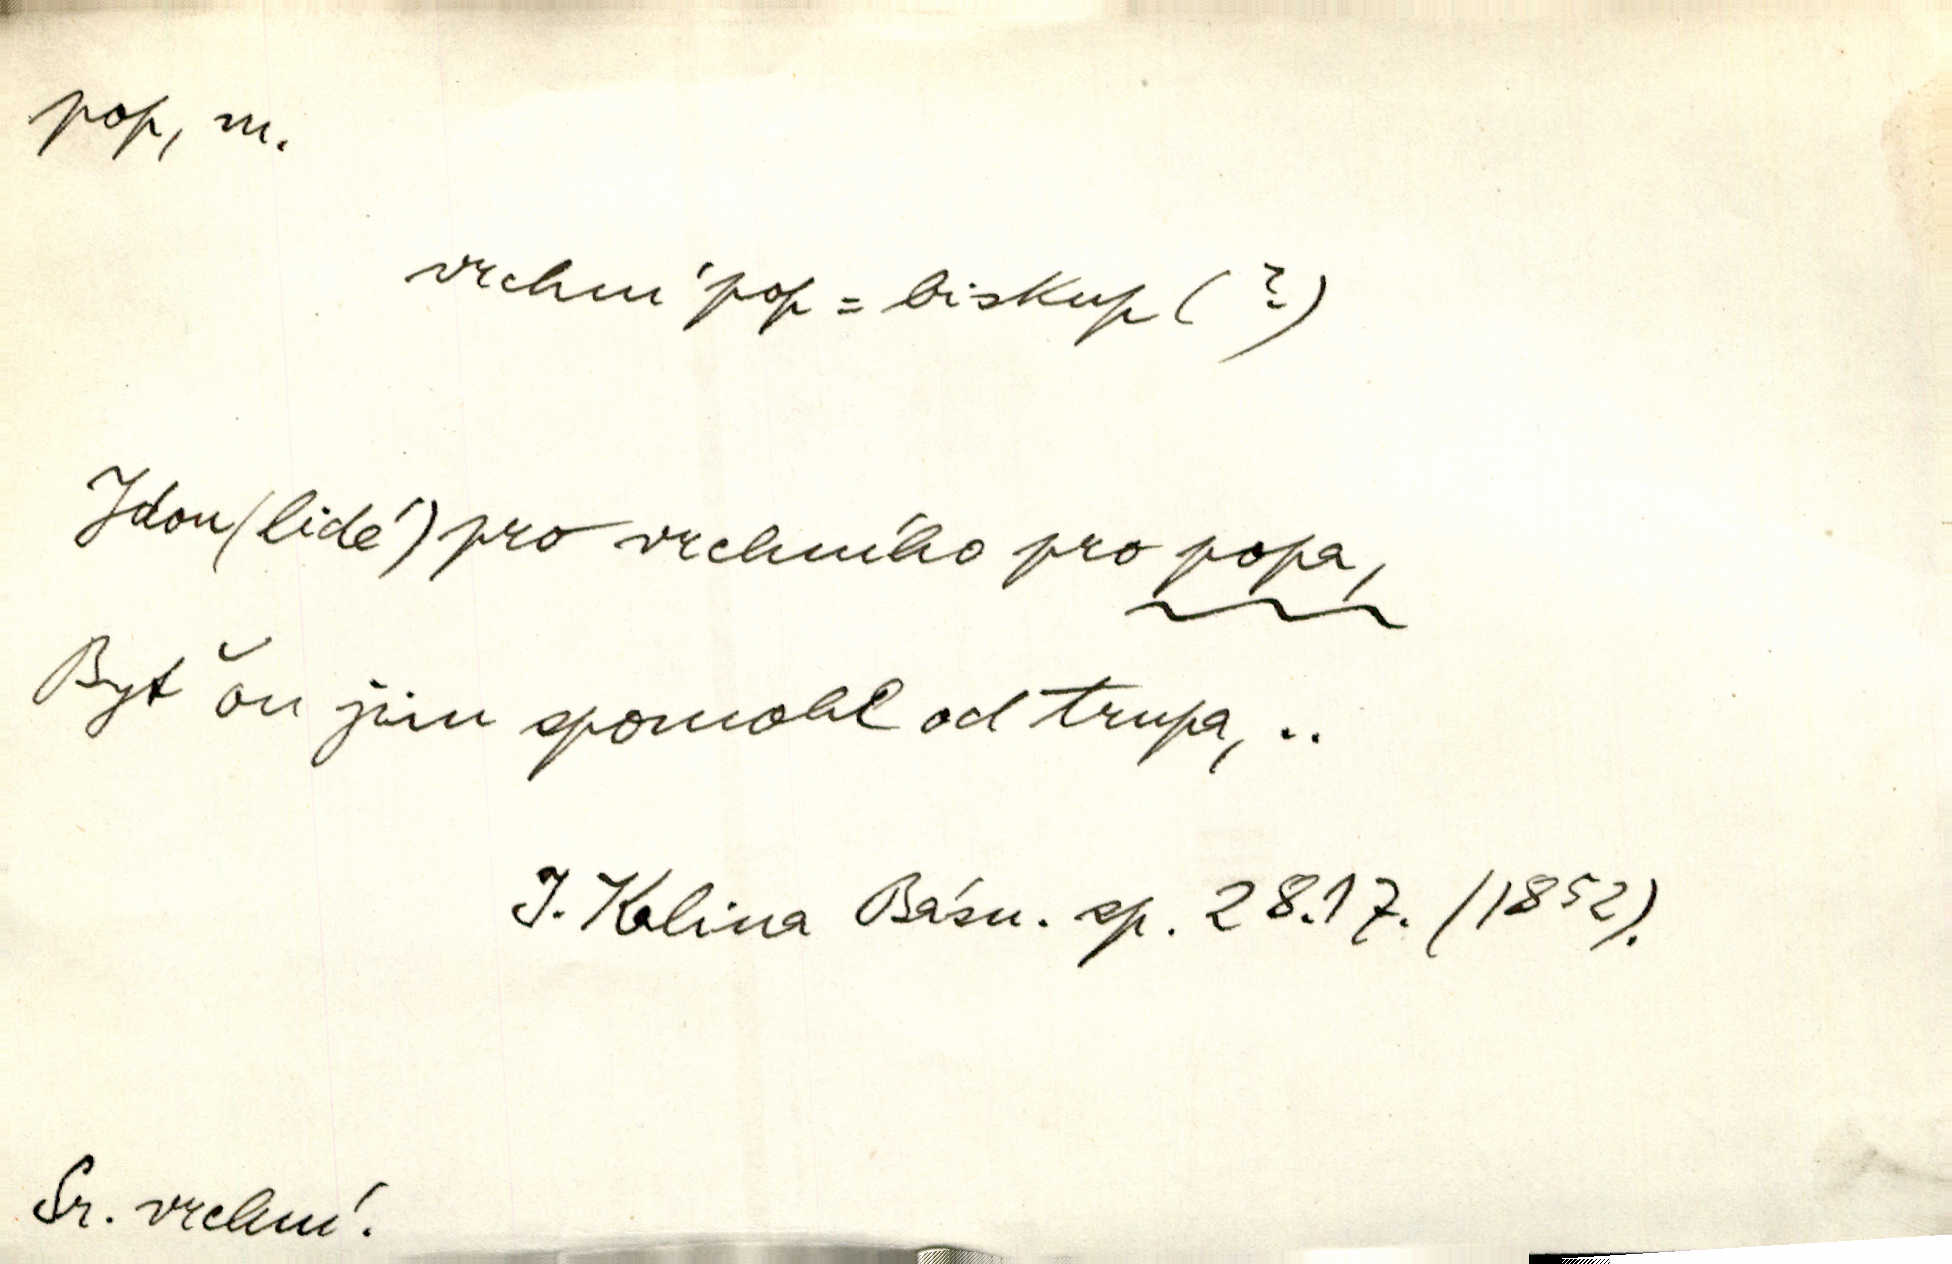 pop, m.
vrchní pop = biskup (?)
Jdou (lidé) pro vrchního pro popa,
Byť on jim spomohl od trupa, ..
J. Kalina Básn. sp. 28.17. (1852).
Sr. vrchní.